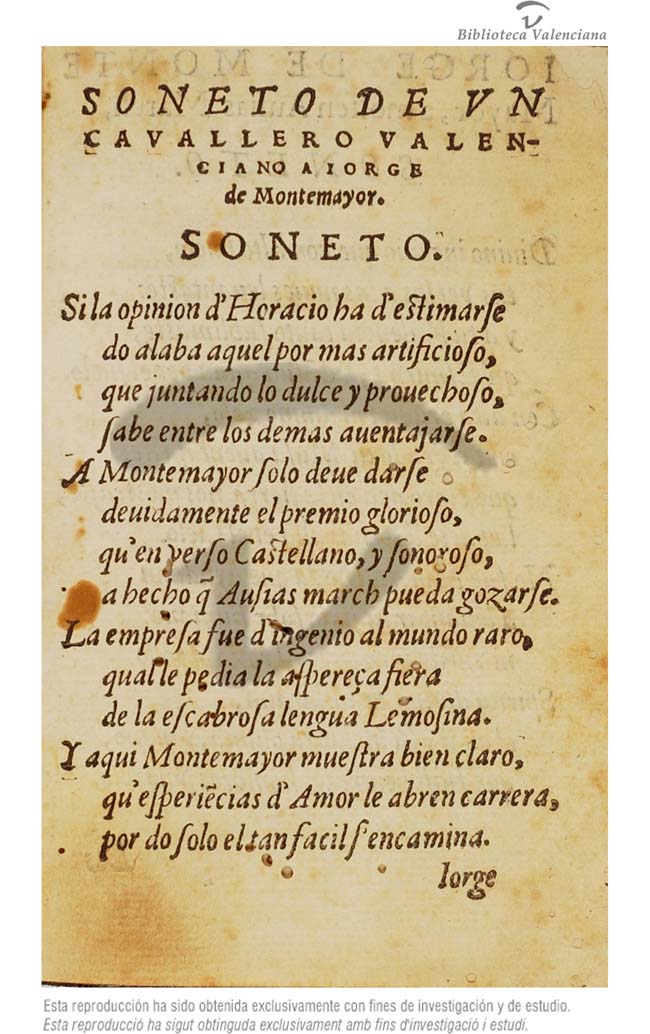 Biblioteca Valenciana
SONETO DE VN
CAVALLERO VALEN-
CIANO A IORGE
de Montemayor.
SONETO.
Si la opinion d'Horacio ha d'estimarse
do alaba aquel por mas artificioso,
que juntando lo dulce y prouechoso,
sabe entre los demas auentajarse.
A Montemayor solo deue darse
deuidamente el premio glorioso,
qu'en verso Castellano, y sonoroso,
a hecho q̃ Ausias march pueda gozarse.
La empresa fue d'ingenio al mundo raro,
qual le pedia la aspereça fiera
de la escabrosa lengua Lemosina.
Y aqui Montemayor muestra bien claro,
qu'esperiẽcias d'Amor le abren carrera,
por do solo el tan facil s'encamina.
Iorge
Esta reproducción ha sido obtenida exclusivamente con fines de investigación y de estudio.
Esta reproducció ha sigut obtinguda exclusivament amb fins d'investigació i estudi.